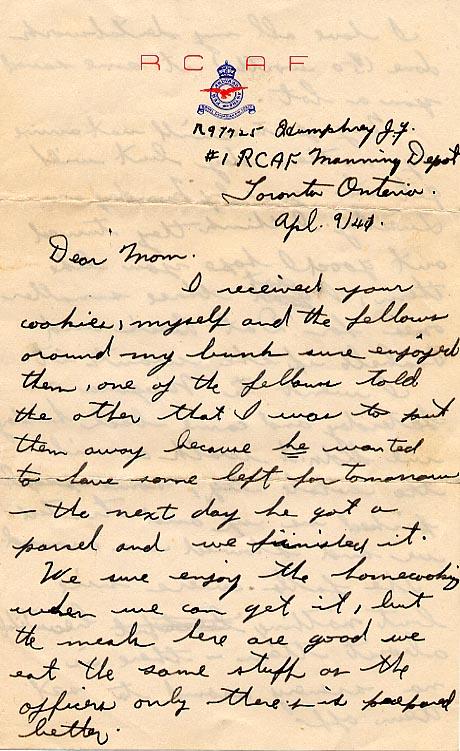 R C A F
R97925 Humphrey J.F.
#1 RCAF Manning Depot
Toronto Ontario.
Apl. 9/41.
Dear Mom.
I received your
cookies, myself and the fellows
around my bunk sure enjoyed
them, one of the fellows told
the other that I was to put
them away because he wanted
to have some left for tomorrow
— the next day he got a
parcel and we finished it.
We sure enjoy the homecooking
when we can get it, but
the meals here are good we
eat the same stuff as the
officers only theirs is prepared
better.